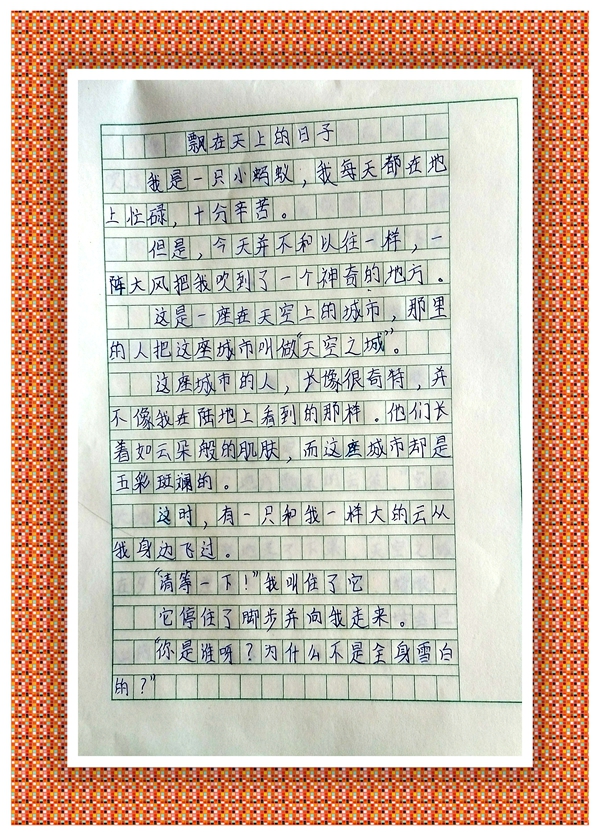 飘在天上的日子
我是一只小蚂蚁，我每天都在地
上忙碌，十分辛苦。
但是，今天并不和以往一样，一
阵大风把我吹到了一个神奇的地方。
这是一座在天空上的城市，那里
的人把这座城市叫做“天空之城”。
这座城市的人，长像很奇特，并
不像我在陆地上看到的那样．他们长
着如云朵般的肌肤，而这座城市却是
五彩斑斓的。
这时，有一只和我一样大的云从
我身边飞过。
“请等一下！”我叫住了它
它停住了脚步并向我走来。
“你是谁呀？为什么不是全身雪白
的？”